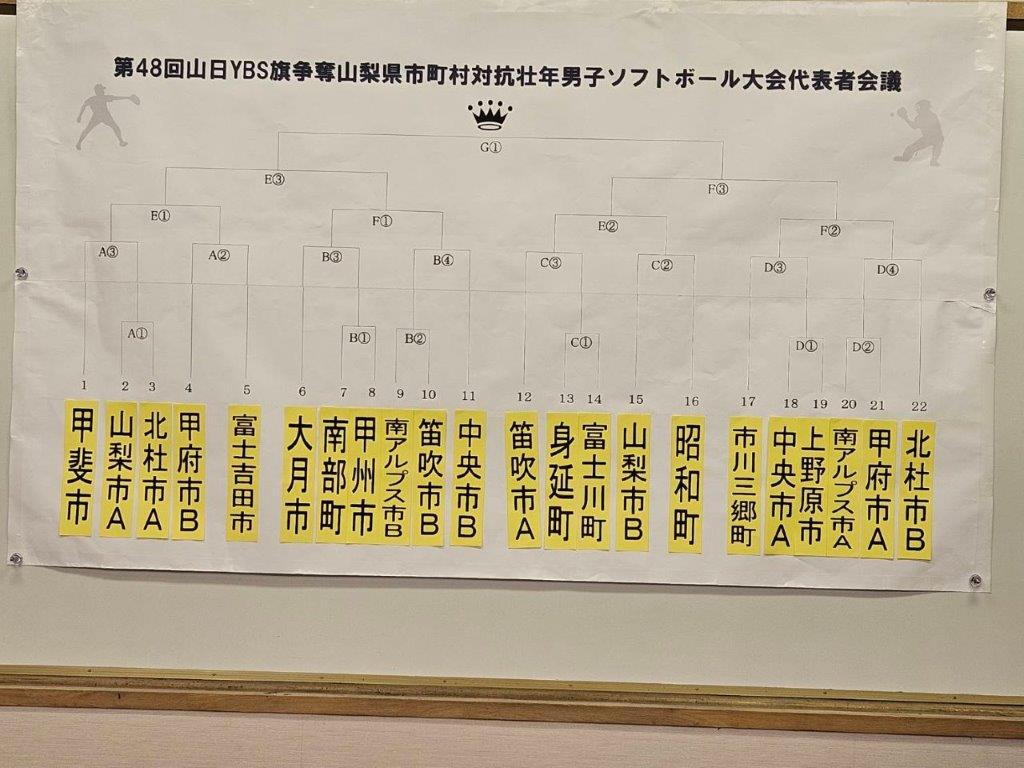 第48回山日YBS旗争奪山梨県市町村対抗壮年男子ソフトボール大会代表者会議
G①
E③ F③
E① F① E② F②
A③ A② B③ B④ C③ C② D③ D④
A① B① B② C① D① D②
1 2 3 4 5 6 7 8 9 10 11 12 13 14 15 16 17 18 19 20 21 22
甲斐市
山梨市A
北杜市A
甲府市B
富士吉田市
大月市
南部町
甲州市
南アルプス市B
笛吹市B
中央市B
笛吹市A
身延町
富士川町
山梨市B
昭和町
市川三郷町
中央市A
上野原市
南アルプス市A
甲府市A
北杜市B